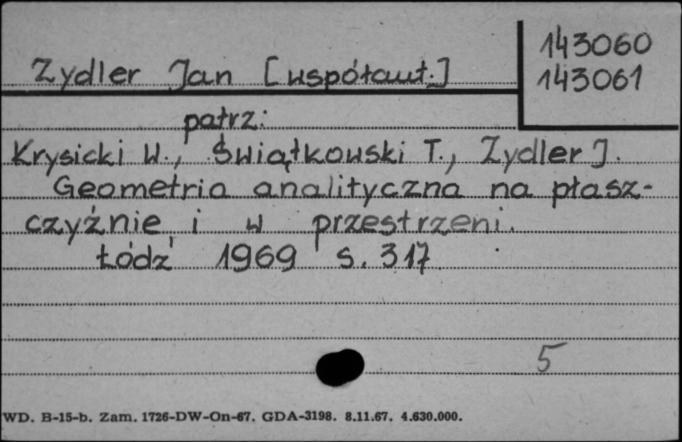 143060
143061
Zydler Jan [współaut.]
patrz:
Krysicki W., Świątkowski T., Zydler J.
Geometria analityczna na płasz-
czyźnie i w przestrzeni.
Łódź 1969 s. 317
5
WD. B-15-b. Zam. 1726-DW-On-67. GDA-3198. 8.11.67. 4.630.000.